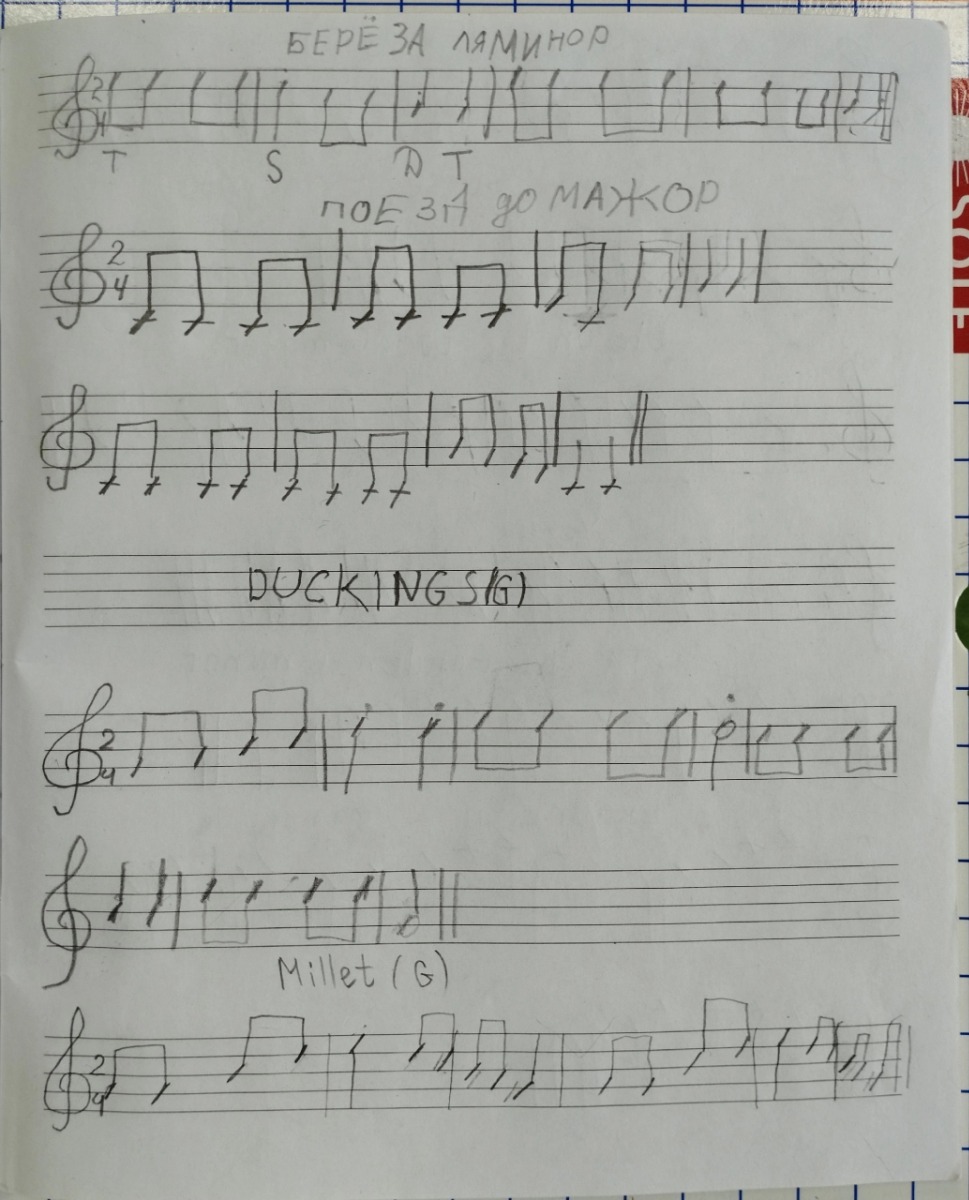 БЕРЁЗА ЛЯМИНОР
2
4
T S D T
ПОЕЗД ДО МАЖОР
2
4
DUCKINGS(G)
2
4
Millet (G)
2
4